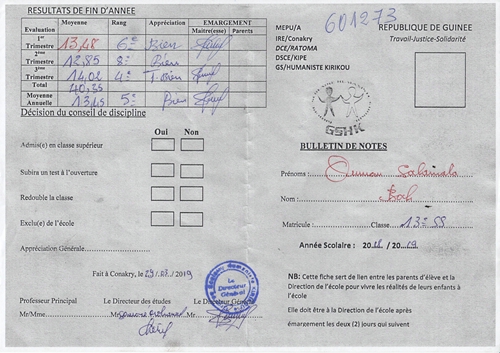 RESULTATS DE FIN D'ANNEE
Evaluation Moyenne Rang Appréciation EMARGEMENT
Maitre(esse) Parents
1er Trimestre 13,48 6e Bien
2ème Trimestre 12,85 8e Bien
3ème Trimestre 14,02 4e T. Bien
Total 40,35
Moyenne Annuelle 13,45 5e Bien
Décision du conseil de discipline
Oui Non
Admis(e) en classe supérieur
Subira un test à l'ouverture
Redouble la classe
Exclu(e) de l'école
Appréciation Générale
Fait à Conakry, le 2019
Professeur Principal Le Directeur des études Le Directeur Général
Mr/Mme Mr/Mme
Le Directeur Général
MEPU/A
IRE/Conakry
DCE/RATOMA
DSCE/KIPE
GS/HUMANISTE KIRIKOU
601273
REPUBLIQUE DE GUINEE
Travail-Justice-Solidarité
GSHK
BULLETIN DE NOTES
Prénoms : Oumou Salamata
Nom : Bah
Matricule : Classe 13e SS
Année Scolaire : 2018 / 2019
NB: Cette fiche sert de lien entre les parents d'élève et la
Direction de l'école pour vivre les réalités de leurs enfants à
l'école
Elle doit être à la Direction de l'école après
émargement les deux (2) jours qui suivent